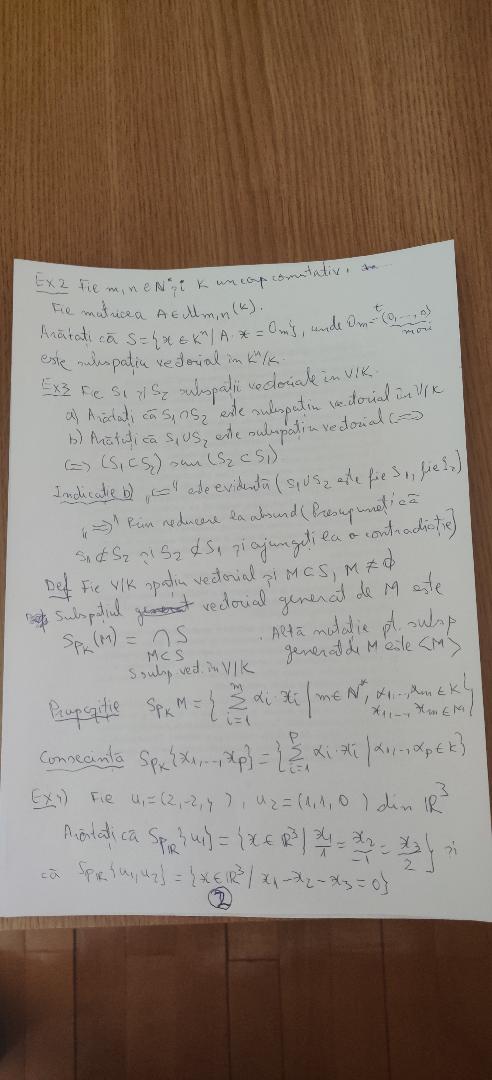 Ex 2 Fie m, n ∈ N* și K un corp comutativ.
Fie matricea A ∈ M_{m,n}(K).
Arătați că S = {x ∈ K^n / A·x = O_m}, unde O_m = ^t(0,...,0)
m ori
este subspațiu vectorial în K^n/K.
Ex 3 Fie S_1 și S_2 subspații vectoriale în V/K.
a) Arătați că S_1 ∩ S_2 este subspațiu vectorial în V/K
b) Arătați că S_1 ∪ S_2 este subspațiu vectorial (⇔)
(⇔) (S_1 ⊂ S_2) sau (S_2 ⊂ S_1)
Indicație b) „⇐" este evidentă (S_1 ∪ S_2 este fie S_1, fie S_2)
„⇒" Prin reducere la absurd (Presupuneți că
S_1 ⊄ S_2 și S_2 ⊄ S_1 și ajungeți la o contradicție)
Def Fie V/K spațiu vectorial și M ⊂ S, M ≠ ∅
Subspațiul vectorial generat de M este
Sp_K(M) = ∩ S . Altă notație pt. subsp
M ⊂ S generat de M este <M>
S subsp ved. în V/K
Propoziție Sp_K M = { Σ_{i=1}^{m} α_i · x_i | m ∈ N*, α_1,..., α_m ∈ K
x_1,..., x_m ∈ M}
Consecință Sp_K{x_1,...,x_p} = { Σ_{i=1}^{p} α_i · x_i | α_1,..., α_p ∈ K}
Ex 4) Fie u_1 = (2,-2,4), u_2 = (1,1,0) din R^3
Arătați că Sp_R{u_1} = {x ∈ R^3 | x_1/1 = x_2/-1 = x_3/2} și
că Sp_R{u_1,u_2} = {x ∈ R^3 / x_1 - x_2 - x_3 = 0}
2